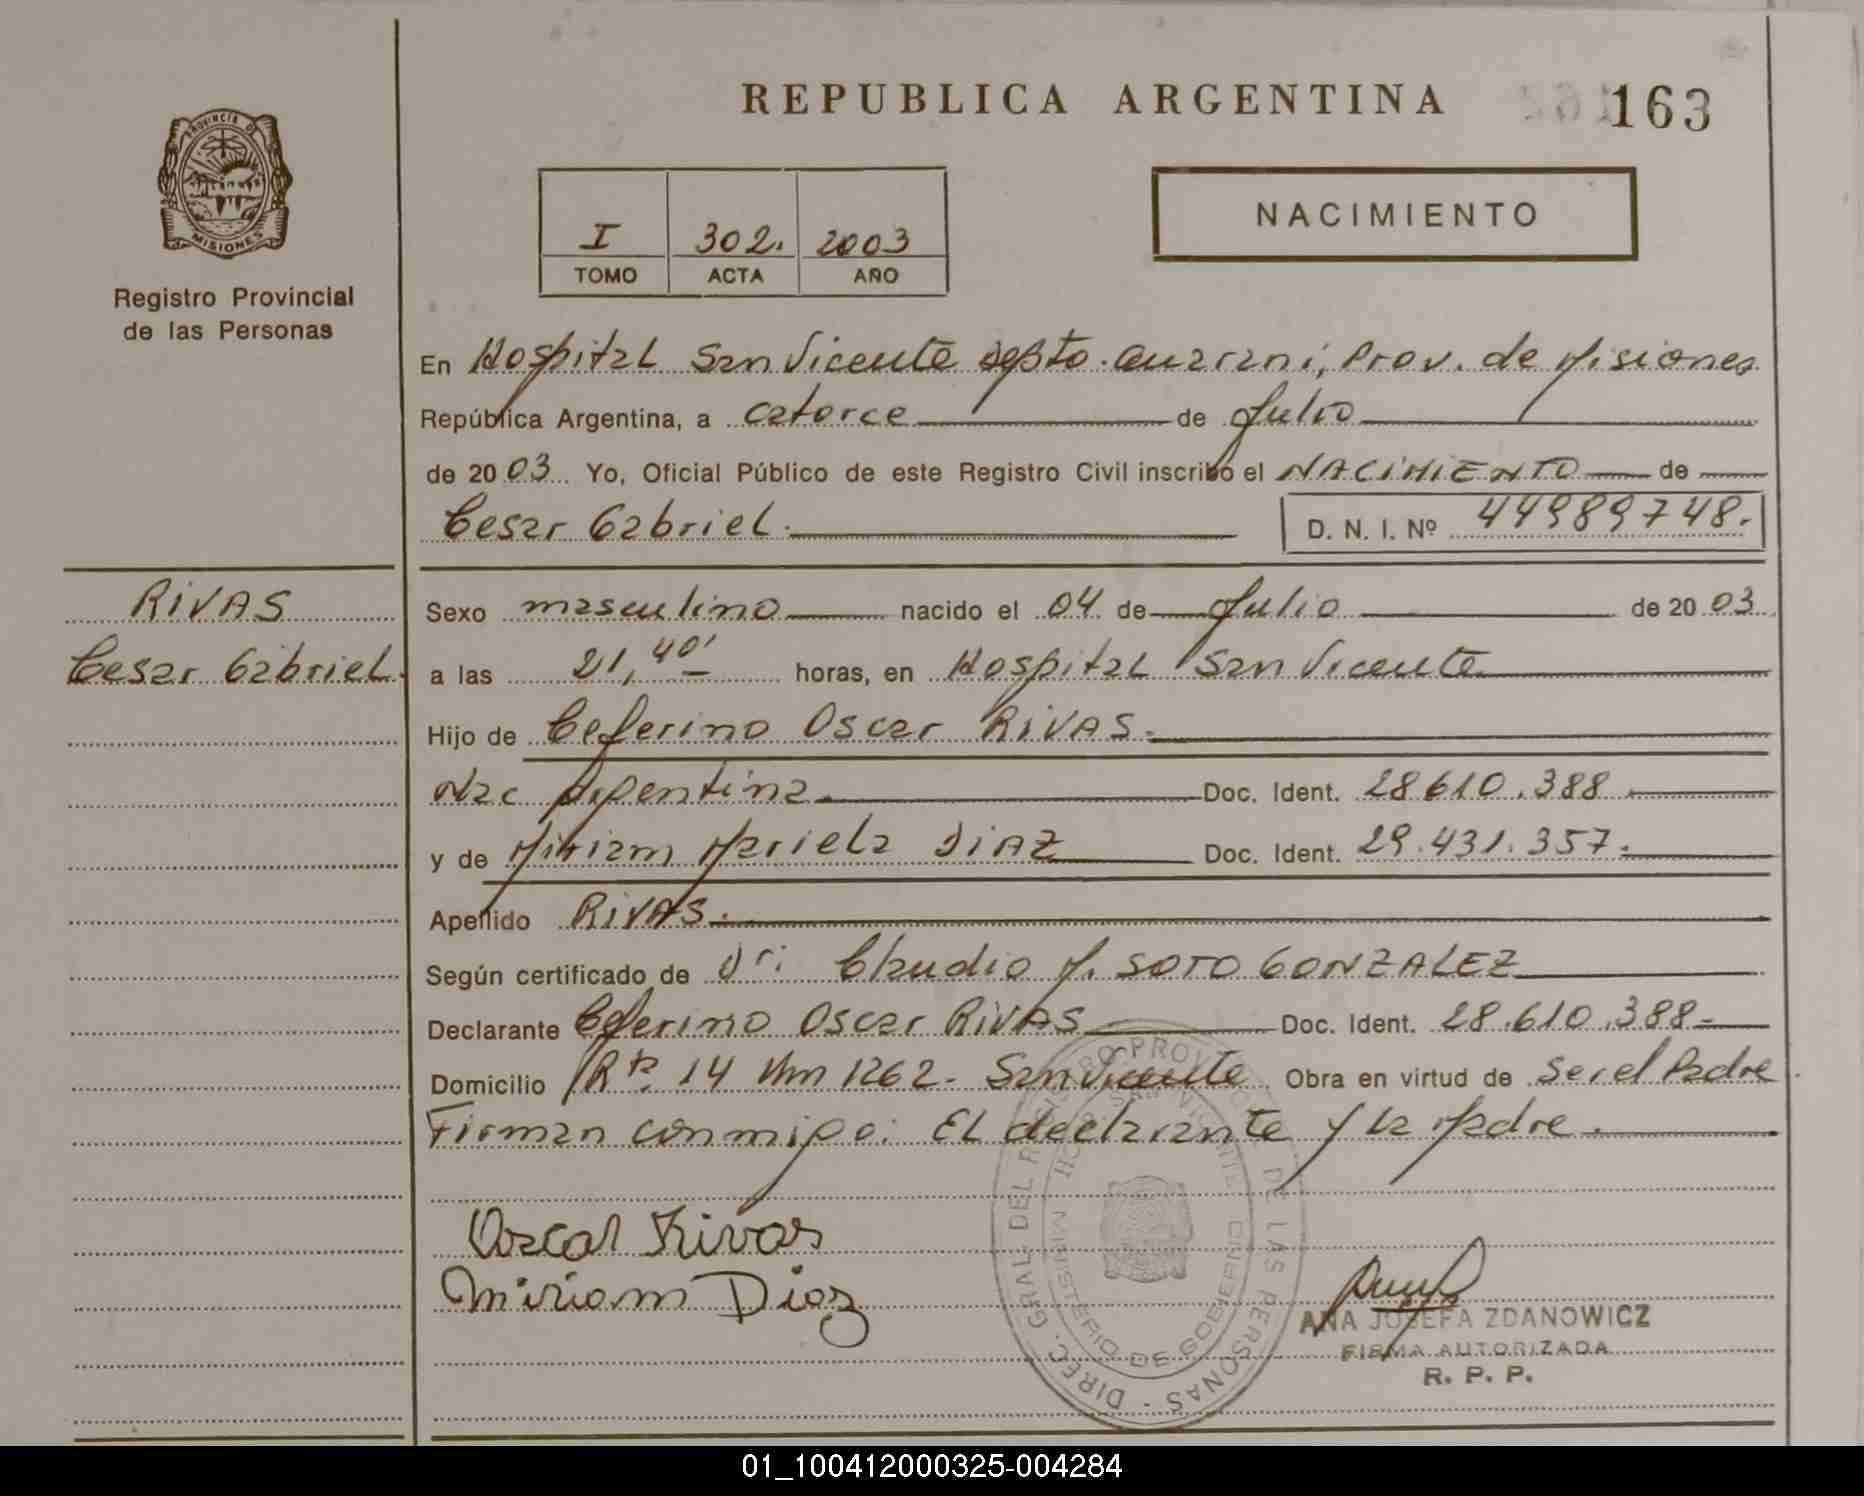 REPUBLICA ARGENTINA
163
PROVINCIA DE
MISIONES
Registro Provincial
de las Personas
I 302. 2003
TOMO ACTA AÑO
NACIMIENTO
En Hospital San Vicente Depto. Guarani, Prov. de Misiones
República Argentina, a catorce de Julio
de 2003 Yo, Oficial Público de este Registro Civil inscribo el NACIMIENTO de
Cesar Gabriel. D. N. I. Nº 44989748.
RIVAS
Cesar Gabriel.
Sexo masculino nacido el 04 de Julio de 2003
a las 21,40' horas, en Hospital San Vicente
Hijo de Ceferino Oscar RIVAS.
Nac Argentina. Doc. Ident. 28610.388.
y de Miriam Mariela DIAZ Doc. Ident. 29.431.357.
Apellido RIVAS.
Según certificado de Dr: Claudio M. SOTO GONZALEZ
Declarante Ceferino Oscar RIVAS Doc. Ident. 28.610.388-
Domicilio Rta. 14 Km 1262- San Vicente Obra en virtud de Ser el Padre
Firman conmigo: El declarante y la Madre.
Oscar Rivas
Miriam Diaz
DIREC. GRAL. DEL REGISTRO PROVINCIAL DE LAS PERSONAS -
MINISTERIO DE GOBIERNO
ANA JOSEFA ZDANOWICZ
FIRMA AUTORIZADA
R. P. P.
01_100412000325-004284